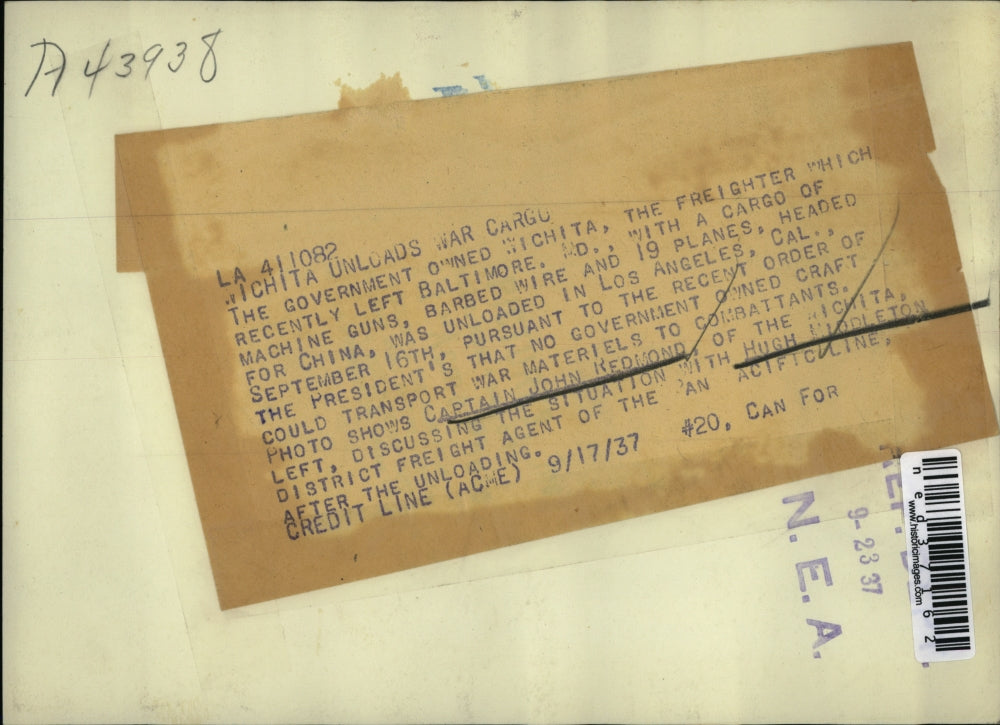 A43938
LA 411082
WICHITA UNLOADS WAR CARGO
THE GOVERNMENT OWNED WICHITA, THE FREIGHTER WHICH
RECENTLY LEFT BALTIMORE, MD., WITH A CARGO OF
MACHINE GUNS, BARBED WIRE AND 19 PLANES, HEADED
FOR CHINA, WAS UNLOADED IN LOS ANGELES, CAL.,
SEPTEMBER 16TH, PURSUANT TO THE RECENT ORDER OF
THE PRESIDENT'S THAT NO GOVERNMENT OWNED CRAFT
COULD TRANSPORT WAR MATERIELS TO COMBATTANTS.
PHOTO SHOWS CAPTAIN JOHN REDMOND, OF THE WICHITA,
LEFT, DISCUSSING THE SITUATION WITH HUGH MIDDLETON,
DISTRICT FREIGHT AGENT OF THE PAN ACIFIC LINE,
AFTER THE UNLOADING.
CREDIT LINE (ACME) 9/17/37 #20, CAN FOR
9-23 37
N. E. A.
ned37162
www.historicimages.com